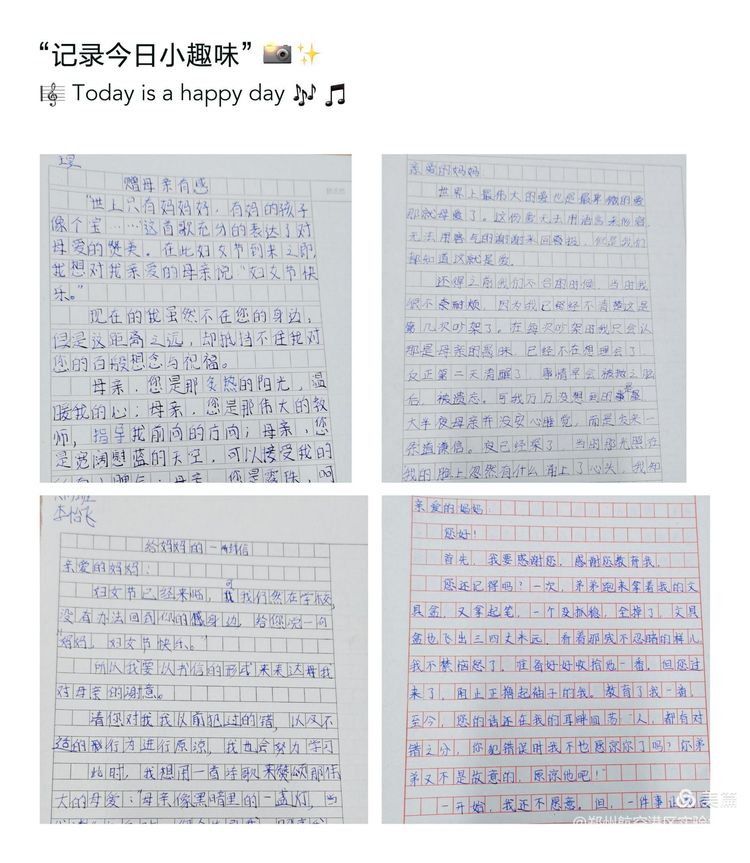 “记录今日小趣味” 📷✨
🎼 Today is a happy day 🎶 🎵
赠母亲有感
“世上只有妈妈好，有妈的孩子
像个宝……”这首歌充分的表达了对
母爱的赞美。在此妇女节到来之际，
我想对我亲爱的母亲说“妇女节快
乐。”
现在的我虽然不在您的身边，
但是这距离之远，却抵挡不住我对
您的百般想念与祝福。
母亲，您是那炙热的阳光，温
暖我的心；母亲，您是那伟大的教
师，指导我前向的方向；母亲，您
是宽阔慰蓝的天空，可以接受我的
亲爱的妈妈
世界上最伟大的爱也是最卑微的爱
那就母爱了。这份爱无法用语言来形容，
无法用客气的谢谢来回报，但是我们
都知道这就是爱。
还得之前我们不合的时候，当时我
很不耐烦，因为我已经不清楚这是
第几次吵架了。在每次吵架时我只会认
都是母亲的，已经不在想理会了，
反正第二天清醒了，事情早会被抛之脑
后，被遗忘。可我万万没想到的是
大半夜母亲并没安心睡觉，而是发来一
条道谦信。夜已经深了，当时那光照在
我的脸上忽然有什么涌上了心头，我知
李怡飞
给妈妈的一封信
亲爱的妈妈：
妇女节已经来临，可我们仍然在学校，
没有办法回到你的身边，给您说一句
“妈妈，妇女节快乐。”
所以我要以书信的形式来表达我
对母亲的谢意。
请您对我从前犯过的错，以及不
适的行为进行原谅，我也会努力学习
此时，我想用一首诗歌来赞颂那伟
大的母爱：“母亲像黑暗里的一盏灯，
亲爱的妈妈：
您好！
首先，我要感谢您，感谢您教育我。
您还记得吗？一次，弟弟跑来拿着我的文
具盒，又拿起笔，一个没抓稳，全掉了，文具
盒也飞出三四丈米远，看着那残不忍睹的样儿
我不禁恼怒了，准备好好收拾他一番。但您过
来了，阻止正撸起袖子的我。教育了我一番，
至今，您的话还在我的耳畔回荡“人，都有对
错之分，你犯错误时我不也原谅你了吗？你弟
弟又不是故意的，原谅他吧！”
一开始，我还不愿意。但，一件事让
美篇
@郑州航空港区实验